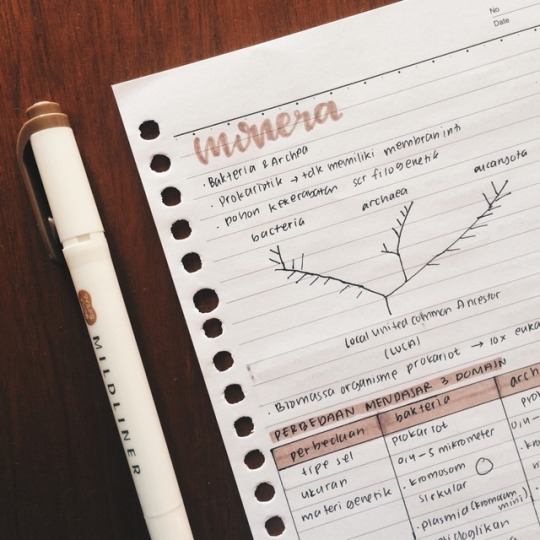 No
Date
monera
· Bakteria & Archea
· Prokariotik → tdk memiliki membran inti
· pohon kekerabatan scr filogenetik
bacteria
archaea
eucaryota
Local United Common Ancestor
(LUCA)
· Biomassa organisme prokariot → 10x euka
PERBEDAAN MENDASAR 3 DOMAIN
perbedaan bakteria arch
tipe sel prokariot pro
ukuran 0,4-5 mikrometer
materi genetik · kromosom
sirkular
· plasmid (kromosom mini)
MILDLINER